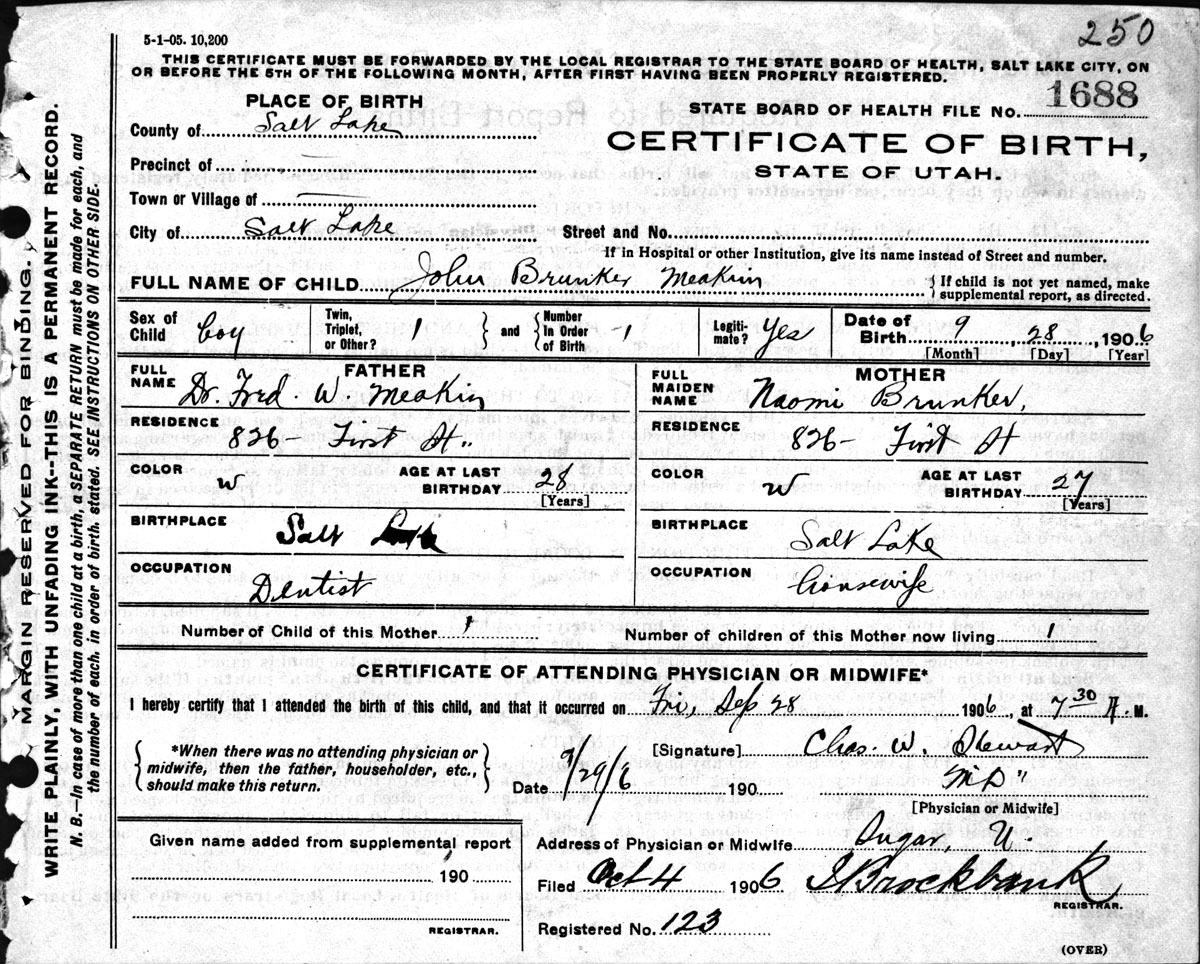 250
5-1-05. 10,200
THIS CERTIFICATE MUST BE FORWARDED BY THE LOCAL REGISTRAR TO THE STATE BOARD OF HEALTH, SALT LAKE CITY, ON
OR BEFORE THE 5TH OF THE FOLLOWING MONTH, AFTER FIRST HAVING BEEN PROPERLY REGISTERED.
PLACE OF BIRTH
STATE BOARD OF HEALTH FILE No. 1688
County of Salt Lake
CERTIFICATE OF BIRTH,
Precinct of —
STATE OF UTAH.
Town or Village of —
City of Salt Lake Street and No.
If in Hospital or other Institution, give its name instead of Street and number.
FULL NAME OF CHILD John Brunker Meakin { If child is not yet named, make
supplemental report, as directed.
Sex of Child boy Twin, Triplet, or Other? 1 } and { Number In Order of Birth 1 Legiti- mate? Yes Date of Birth 9, 28, 1906
[Month] [Day] [Year]
FATHER
FULL NAME Dr. Fred. W. Meakin
RESIDENCE 826 First St..
COLOR w AGE AT LAST BIRTHDAY 28
[Years]
BIRTHPLACE Salt Lake
OCCUPATION Dentist
MOTHER
FULL MAIDEN NAME Naomi Brunker,
RESIDENCE 826- First St
COLOR w AGE AT LAST BIRTHDAY 27
[Years]
BIRTHPLACE Salt Lake
OCCUPATION Housewife
Number of Child of this Mother 1 Number of children of this Mother now living 1
CERTIFICATE OF ATTENDING PHYSICIAN OR MIDWIFE*
I hereby certify that I attended the birth of this child, and that it occurred on Fri, Sep 28 1906, at 7 30 A. M.
{ *When there was no attending physician or
midwife, then the father, householder, etc.,
should make this return. }
[Signature] Chas. W. Stewart
Date 9/29/6 190 M.D"
[Physician or Midwife]
Given name added from supplemental report
190
REGISTRAR.
Address of Physician or Midwife Sugar, U.
Filed Oct 4 1906 Brockbank
REGISTRAR.
Registered No. 123
(OVER)
MARGIN RESERVED FOR BINDING.
WRITE PLAINLY, WITH UNFADING INK--THIS IS A PERMANENT RECORD.
N. B.—In case of more than one child at a birth, a SEPARATE RETURN must be made for each, and
the number of each, in order of birth, stated. SEE INSTRUCTIONS ON OTHER SIDE.